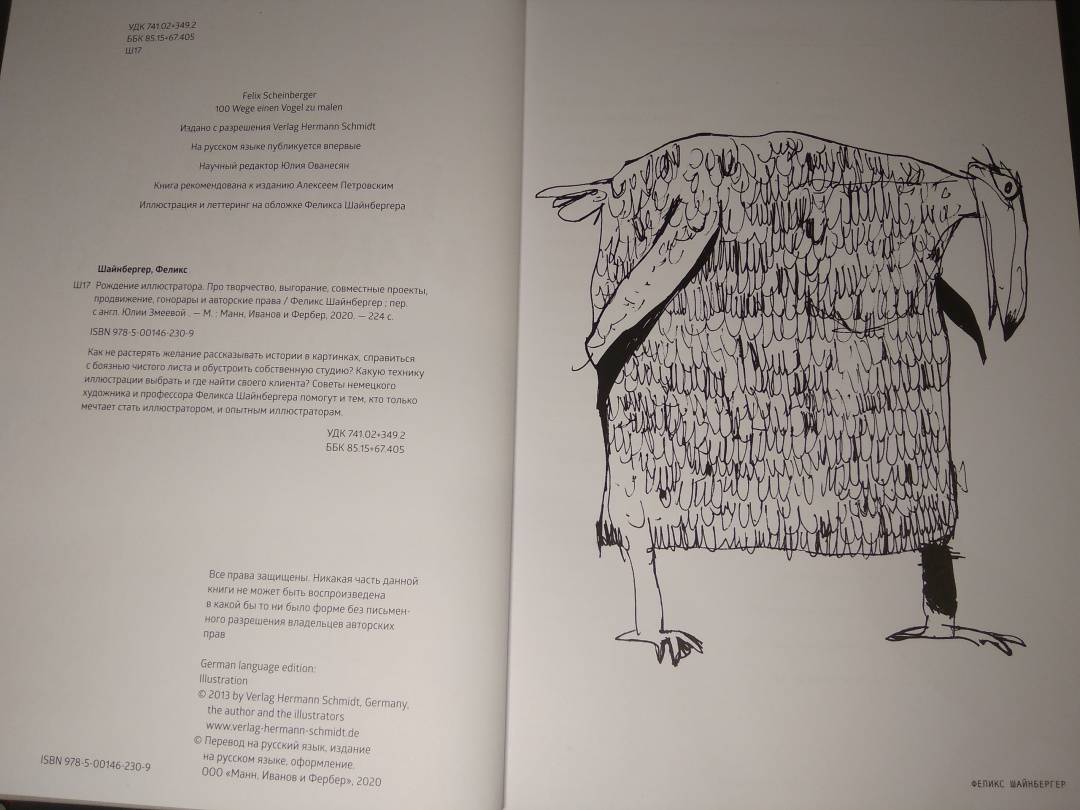 УДК 741.02+349.2
ББК 85.15+67.405
Ш17
Felix Scheinberger
100 Wege einen Vogel zu malen
Издано с разрешения Verlag Hermann Schmidt
На русском языке публикуется впервые
Научный редактор Юлия Ованесян
Книга рекомендована к изданию Алексеем Петровским
Иллюстрация и леттеринг на обложке Феликса Шайнбергера
Шайнбергер, Феликс
Ш17 Рождение иллюстратора. Про творчество, выгорание, совместные проекты,
продвижение, гонорары и авторские права / Феликс Шайнбергер ; пер.
с англ. Юлии Змеевой . — М. : Манн, Иванов и Фербер, 2020. — 224 с.
ISBN 978-5-00146-230-9
Как не растерять желание рассказывать истории в картинках, справиться
с боязнью чистого листа и обустроить собственную студию? Какую технику
иллюстрации выбрать и где найти своего клиента? Советы немецкого
художника и профессора Феликса Шайнбергера помогут и тем, кто только
мечтает стать иллюстратором, и опытным иллюстраторам.
УДК 741.02+349.2
ББК 85.15+67.405
Все права защищены. Никакая часть данной
книги не может быть воспроизведена
в какой бы то ни было форме без письмен-
ного разрешения владельцев авторских
прав
German language edition:
Illustration
© 2013 by Verlag Hermann Schmidt, Germany,
the author and the illustrators
www.verlag-hermann-schmidt.de
© Перевод на русский язык, издание
на русском языке, оформление.
ООО «Манн, Иванов и Фербер», 2020
ISBN 978-5-00146-230-9
ФЕЛИКС ШАЙНБЕРГЕР